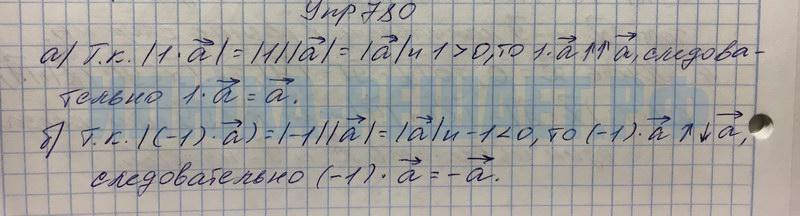 Упр 780
а) Т.к. |1·a⃗| = |1||a⃗| = |a⃗| и 1 > 0, то 1·a⃗ ↑↑ a⃗, следова-
тельно 1·a⃗ = a⃗.
б) Т.к. |(-1)·a⃗) = |-1||a⃗| = |a⃗| и -1 < 0, то (-1)·a⃗ ↑↓ a⃗,
следовательно (-1)·a⃗ = -a⃗.